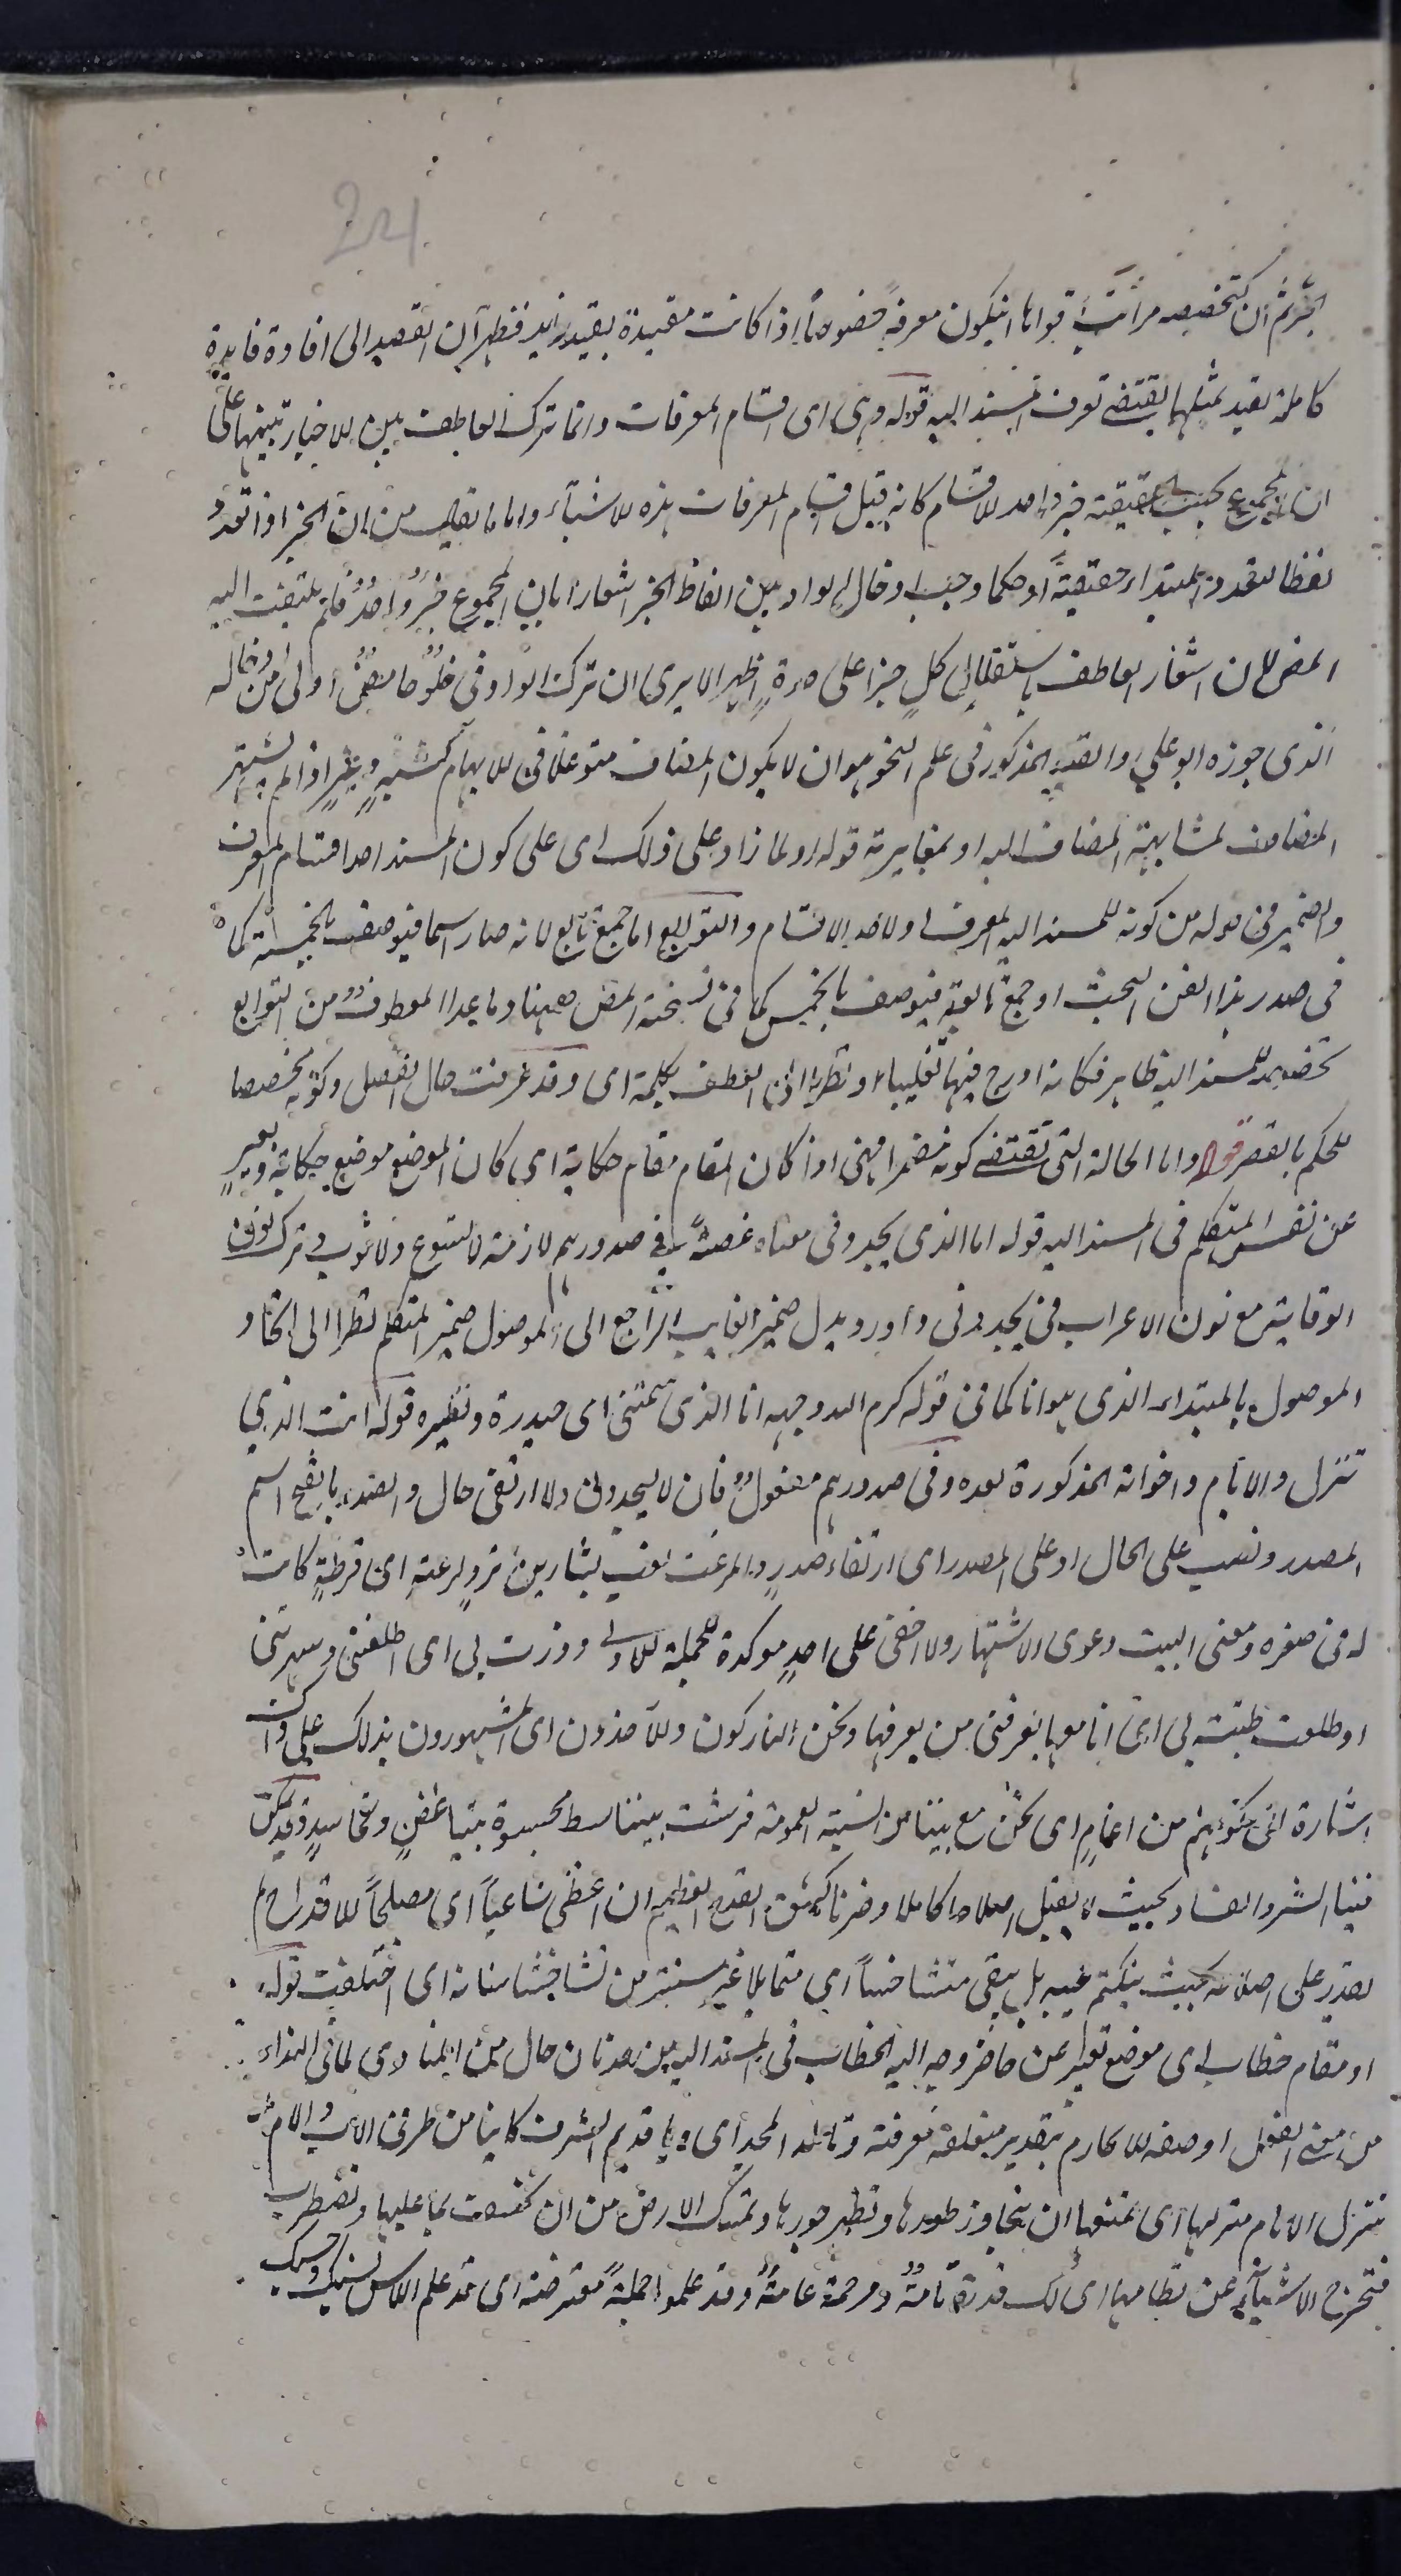 الخبر ثم ان لتخصيصه مراتب اقواها ان يكون معرفة خصوصا اذا كانت مقيدة بقيد زايد فظهر ان القصد الى افادة فايدة
كاملة يعتد بمثلها يقتضى تعرف المسند اليه قوله وهى اى اقسام المعرفات وانما ترك العاطف بين الاخبار تنبيها على
ان المجموع بحسب الحقيقة خبر واحد للاقسام كانه قيل اقسام المعرفات هذه الاشياء واما ما يقال من ان الخبر اذا تعدد
لفظا لتعدد المبتداء حقيقة او حكما وجب ادخال الواو بين الفاظ الخبر اشعارا بان المجموع خبر واحد فلم يلتفت اليه
المص لان اشعار العاطف باستقلال كل خبر على حدة اظهر الا يرى ان ترك الواو فى حلو حامض اولى من ادخاله
الذى جوزه ابو على والقيد المذكور فى علم النحو هو ان لا يكون المضاف متوغلا فى الابهام كشبه وغير اذا لم يشتهر
المضاف لمشابهة المضاف اليه او بمغايرته قوله او لما زاد على ذلك اى على كون المسند احد اقسام المعرف
والضمير فى قوله من كونه للمسند اليه المعرف او لاحد الاقسام والتوابع اما جمع تابع لانه صار اسما فيوصف بالخمسة كما
فى صدر هذا الفن البحث او جمع تابعة فيوصف بالخمس كما فى نسخة المص ههنا وما عدا المعطوف من التوابع
تخصيصه للمسند اليه ظاهر فكانه ادرج فيها تغليبا او نظرا الى العطف بكلمة اى وقد عرفت حال الفصل وكونه مخصصا
للحكم بالقصر قوله واما الحالة التى تقتضى كونه مضمرا فهى اذا كان المقام مقام حكاية اى كان الموضع موضع حكاية وتعبير
عن نفس المتكلم فى المسند اليه قوله انا الذى يجدونى معناه غصة فى صدورهم لازمة لا تسوغ ولا تثوب وترك نون
الوقاية مع نون الاعراب فى يجدونى واورد بدل ضمير الغايب الراجع الى الموصول ضمير المتكلم نظرا الى اتحاد
الموصول بالمبتداء الذى هو انا كما فى قوله كرم الله وجهه انا الذى سمتنى امى حيدرة ونظيره قوله انت الذى
تنزل الايام واخواته المذكورة بعده وفى صدورهم مفعول ثان ليجدونى ولا ارتقى حال والصدر بالفتح اسم
المصدر ونصب على الحال او على المصدر اى ارتقاء صدر والمرعث لقب بشار بن برد لرعثة اى قرطة كانت
له فى صغره ومعنى البيت دعوى الاشتهار ولا اخفى على احد موكدة للجملة الاولى وذرت بى اى اطلعتنى وشهرتنى
او طلعت ظبته بى اى انا معها يعرفنى من يعرفها ونحن التاركون والآخذون اى المشهورون بذلك على
اشارة الى كونهم من اعمام اى نحن مع بيننا من النسبة العمومة فرشت بيننا بسط محسوة
فينا الشر والفساد بحيث لا يقبل اصلاحا كاملا وضرنا كشق القدح العظيم ان اعطى شاعبا اى مصلحا للاقداح لم
يقدر على اصلاحه بحيث ينكتم عيبه بل يبقى متشاخسا اى متمايلا غير مستتر من تشاخست اسنانه اى اختلفت قوله
او مقام خطاب اى موضع تعبير عن حاضر وجه اليه الخطاب فى المسند اليه من عدنان حال من المنادى لما فى النداء
من معنى الفعل او صفة للاكارم بتقدير متعلقه معرفة وتالد المجد اى ويا قديم الشرف كاينا من طرفى الاب والام
تنزل الايام منزلها اى تمنعها ان يتجاوز طورها ويظهر جورها وتمسك الارض من ان تخسف بما عليها وتضطرب
فتخرج الاشياء عن نظامها اى لك قدرة تامة ومرحمة عامة وقد علموا جملة معترضة اى قد علم الناس